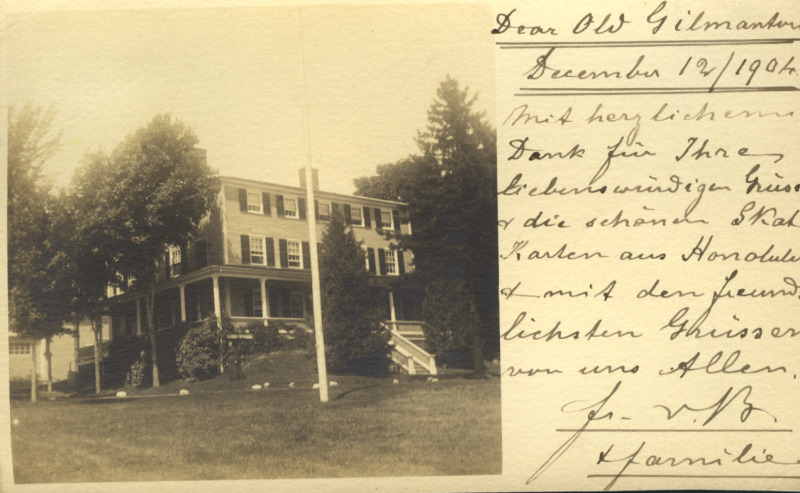 Dear Old Gilmanton
December 12/1904
Mit herzlichem
Dank für Ihre
liebenswürdigen Grüsse
& die schönen Skat
Karten aus Honolulu
& mit den freund
lichsten Grüssen
von uns Allen.
fr. v. B.
& familie